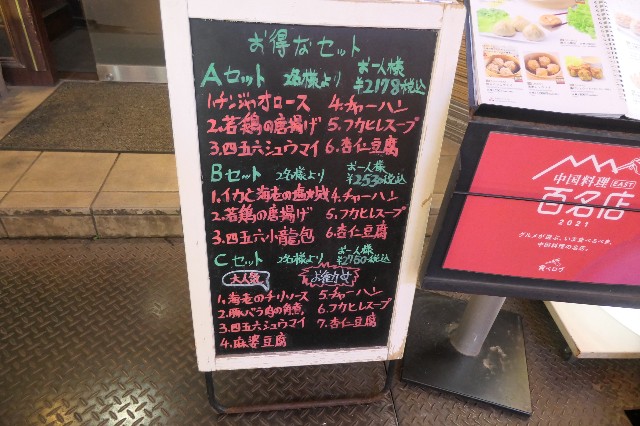 お得なセット
Aセット 2名様より お一人様 ¥2178税込
1.チンジャオロース 4.チャーハン
2.若鶏の唐揚げ 5.フカヒレスープ
3.四五六シュウマイ 6.杏仁豆腐
Bセット 2名様より お一人様 ¥2530税込
1.イカと海老の塩炒め 4.チャーハン
2.若鶏の唐揚げ 5.フカヒレスープ
3.四五六小龍包 6.杏仁豆腐
Cセット 2名様より お一人様 ¥2750税込
大人気 お勧め
1.海老のチリソース 5.チャーハン
2.豚バラ肉の角煮 6.フカヒレスープ
3.四五六シュウマイ 7.杏仁豆腐
4.麻婆豆腐
中国料理 EAST
百名店
2021
グルメが選ぶ、いま食べるべき、
中国料理の名店。
食べログ